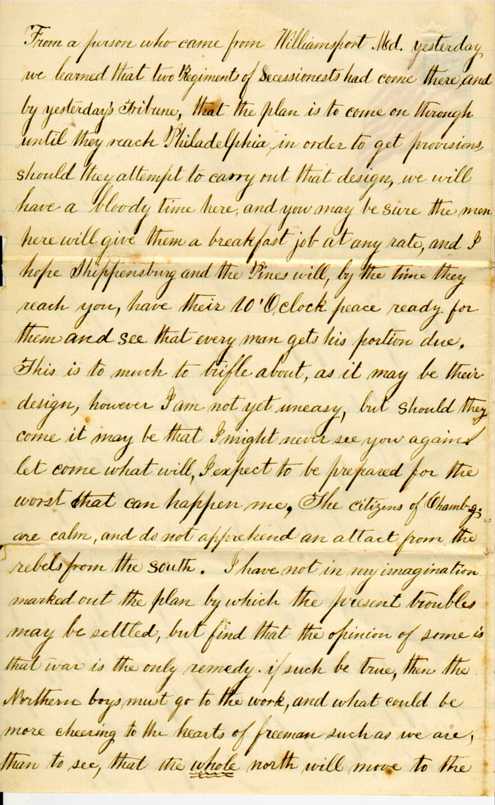 From a person who came from Williamsport Md. yesterday
we learned that two Regiments of Secessionests had come there, and
by yesterday's Tribune, that the plan is to come on through
until they reach Philadelphia, in order to get provisions
should they attempt to carry out that design, we will
have a bloody time here, and you may be sure the men
here will give them a breakfast job at any rate, and I
hope Shippensburg and the Pines will, by the time they
reach you, have their 10 'O,clock peace ready for
them and see that every man gets his portion due.
This is to much to trifle about, as it may be their
design, however I am not yet uneasy, but should they
come it may be that I might never see you again
let come what will, I expect to be prepared for the
worst that can happen me, The citizens of Chambg:
are calm, and do not apprehend an attact from the
rebels from the south. I have not in my imagination
marked out the plan by which the present troubles
may be settled, but find that the opinion of some is
that war is the only remedy. if such be true, then the
Northern boys must go to the work, and what could be
more cheering to the hearts of freeman such as we are,
than to see, that the whole north will move to the